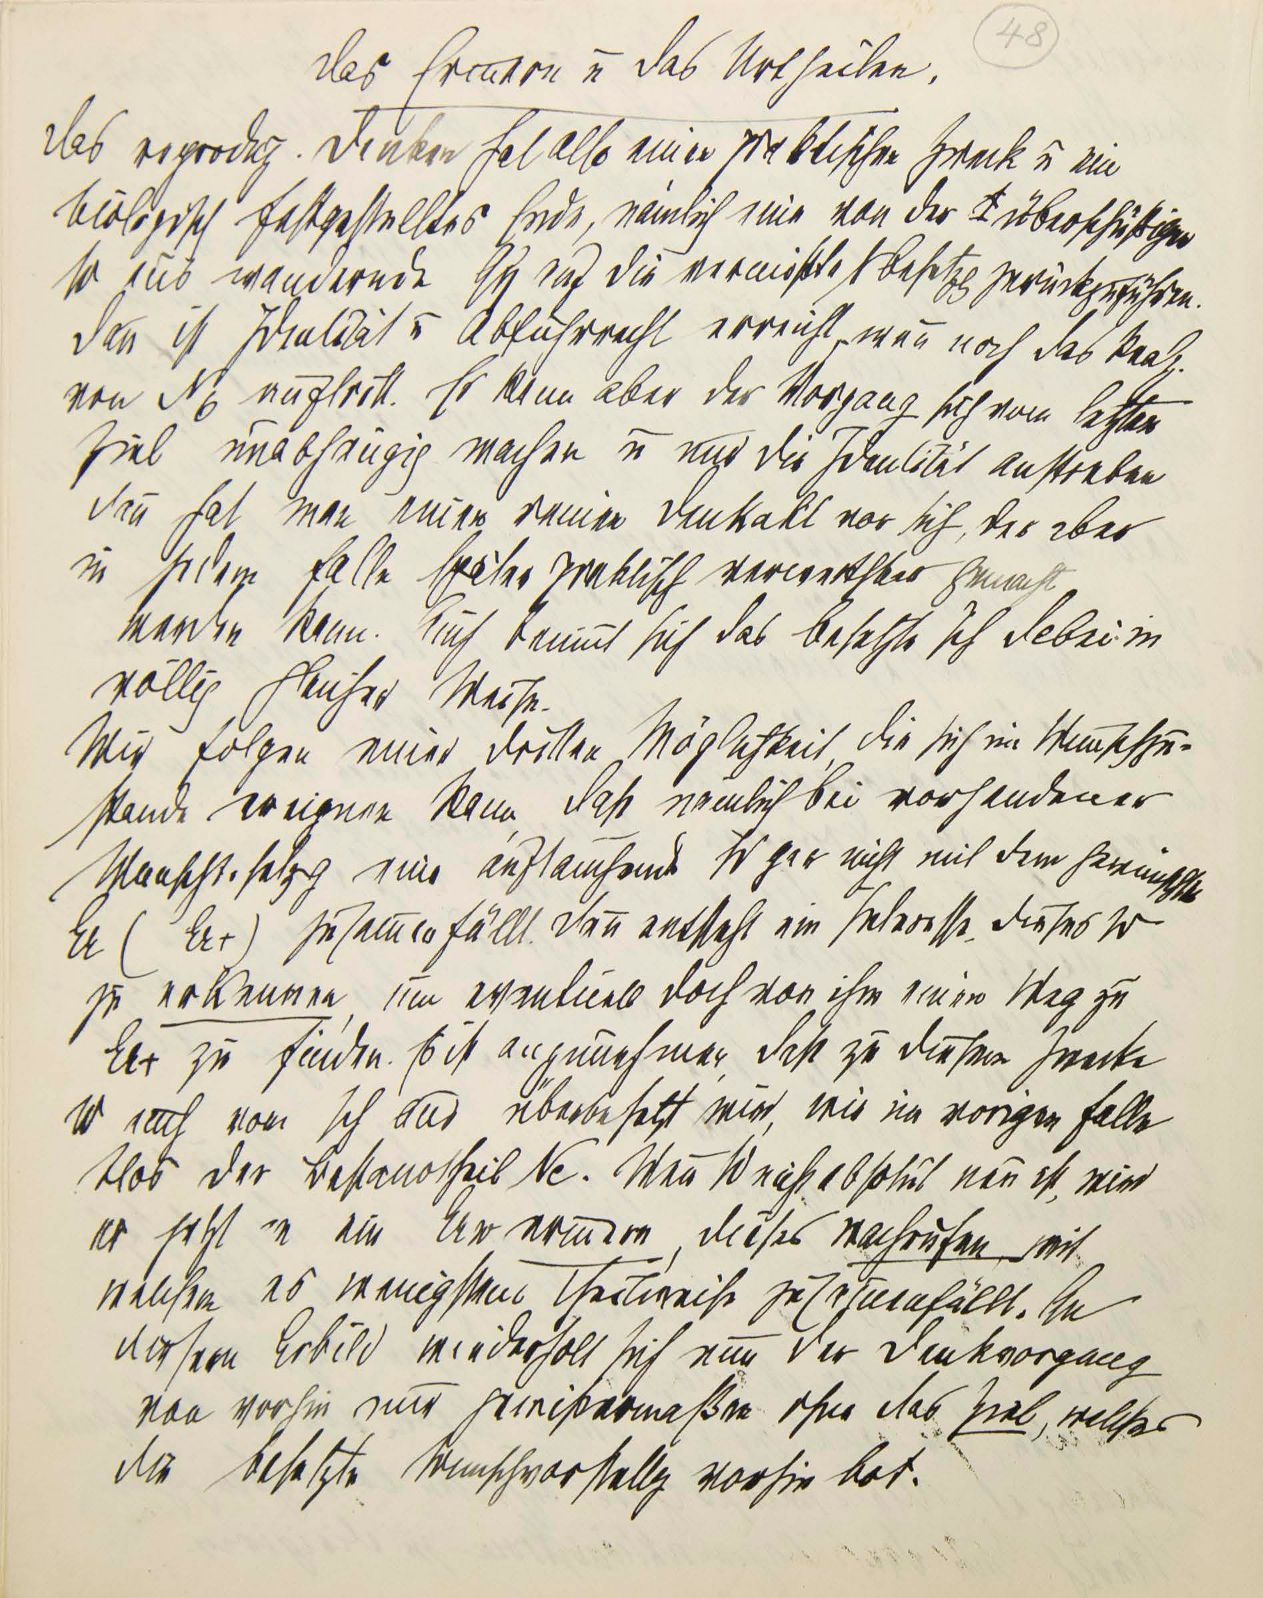 48
Das Erinnern u das Urtheilen.
Das reproduz. Denken hat also einen praktischen Zweck u ein
biologisch festgestelltes Ende, nämlich eine von der überschüßigen
W aus wandernde Qή auf die vermißte Besetzg zurückzuführen.
Dan ist Identität u Abfuhrrecht erreicht, wenn noch das Realz.
von Nb auftritt. Es kann aber der Vorgang sich vom letzten
Ziel unabhängig machen u nur die Identität anstreben
Dann hat man einen reinen Denkakt vor sich, der aber
in jedem Falle später praktisch verwerthbar gemacht
werden kann. Auch benimmt sich das besetzte Ich dabei in
völlig gleicher Weise.
Wir folgen einer dritten Möglichkeit, die sich im Wunschzu-
stande ereignen kann, daß nämlich bei vorhandener
Wunschbesetzg eine auftauchende W gar nicht mit dem gewünschten
Er (Er+) zusammenfällt. Dann entsteht ein Interesse, dieses W
zu erkennen, um eventuell doch von ihm einen Weg zu
Er+ zu finden. Es ist anzunehmen, daß zu diesem Zwecke
W auch vom Ich aus überbesetzt wird, wie im vorigen Falle
blos der Bestandtheil Nc. Wenn W nicht absolut neu ist, wird
es jetzt an ein Er W erinnern, dieses wachrufen, mit
welchem es wenigstens theilweise zusammenfällt. An
diesem Erbild wiederholt sich nun der Denkvorgang
von vorhin nur gewißermaßen ohne das Ziel, welches
die besetzte Wunschvorstellg vorhin bot.